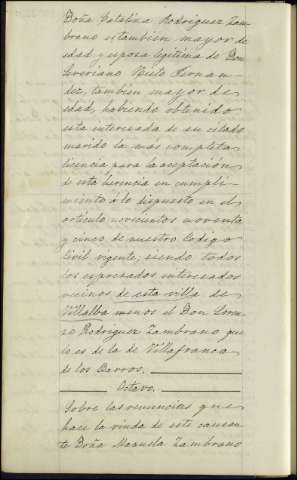 Doña Catalina Rodriguez Zam-
brano es tambien mayor de
edad y esposa legitima de Don
Severiano Nieto Fernan-
dez, tambien mayor de
edad, habiendo obtenido
esta interesada de su citado
marido la más completa
licencia para la aceptación
de esta herencia en cumpli-
miento á lo dispuesto en el
artículo novecientos noventa
y cinco de nuestro Codigo
Civil vigente, siendo todos
los expresados interesados
vecinos de esta villa de
Villalba menos el Don Loren-
zo Rodriguez Zambrano que
lo es de la de Villafranca
de los Barros.
Octavo.
Sobre las renuncias que
hace la viuda de este causan-
te Doña Manuela Zambrano